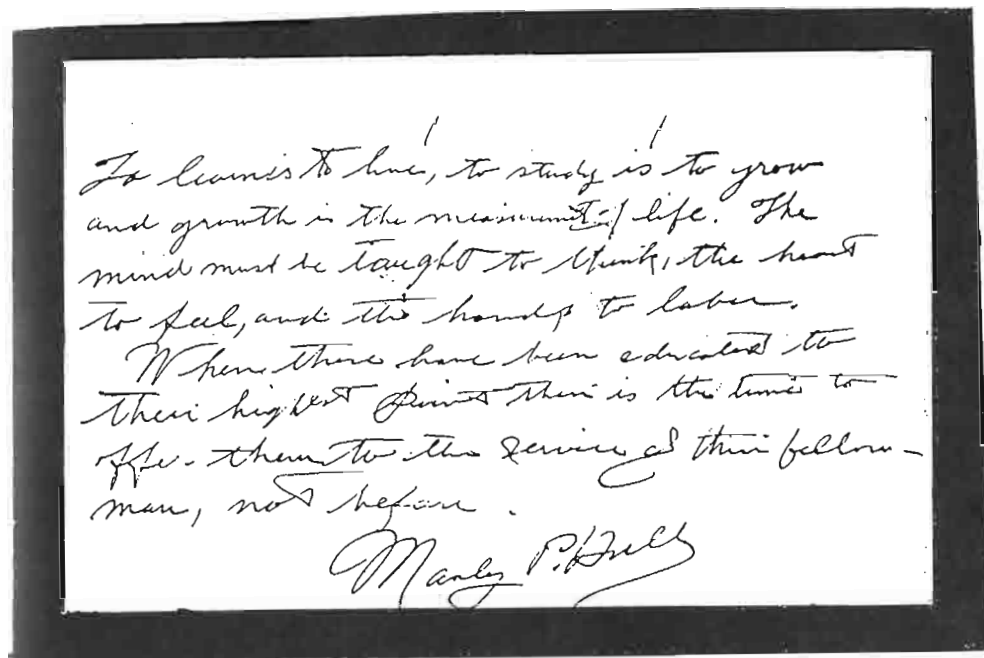 To learn is to live, to study is to grow
and growth is the measurement of life. The
mind must be taught to think, the heart
to feel, and the hands to labor.
When these have been educated to
their highest point then is the time to
offer them to the service of their fellow-
man, not before.
Manly P. Hall